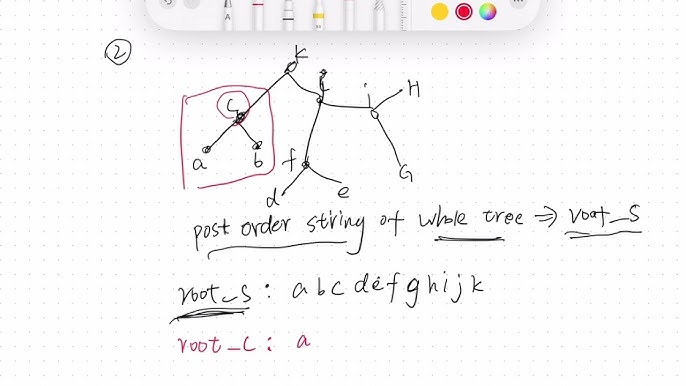 ②
k
c
i
H
a
b
f
G
d
e
post order string of whole tree ⇒ root_s
root_s : a b c d e f g h i j k
root_c : a